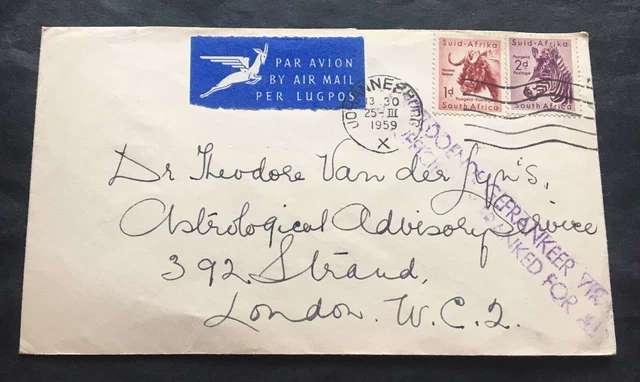 PAR AVION
BY AIR MAIL
PER LUGPOS
Suid-Afrika
1d
Posgeld Postage
South Africa
Suid-Afrika
Posgeld
2d
Postage
South Africa
JOHANNESBURG
13 30
25-III
1959
X
GEFRANKEER VIR
FRANKED FOR
Dr Theodore Van der Lyn's,
Astrological Advisory Service
392 Strand,
London. W.C.2.